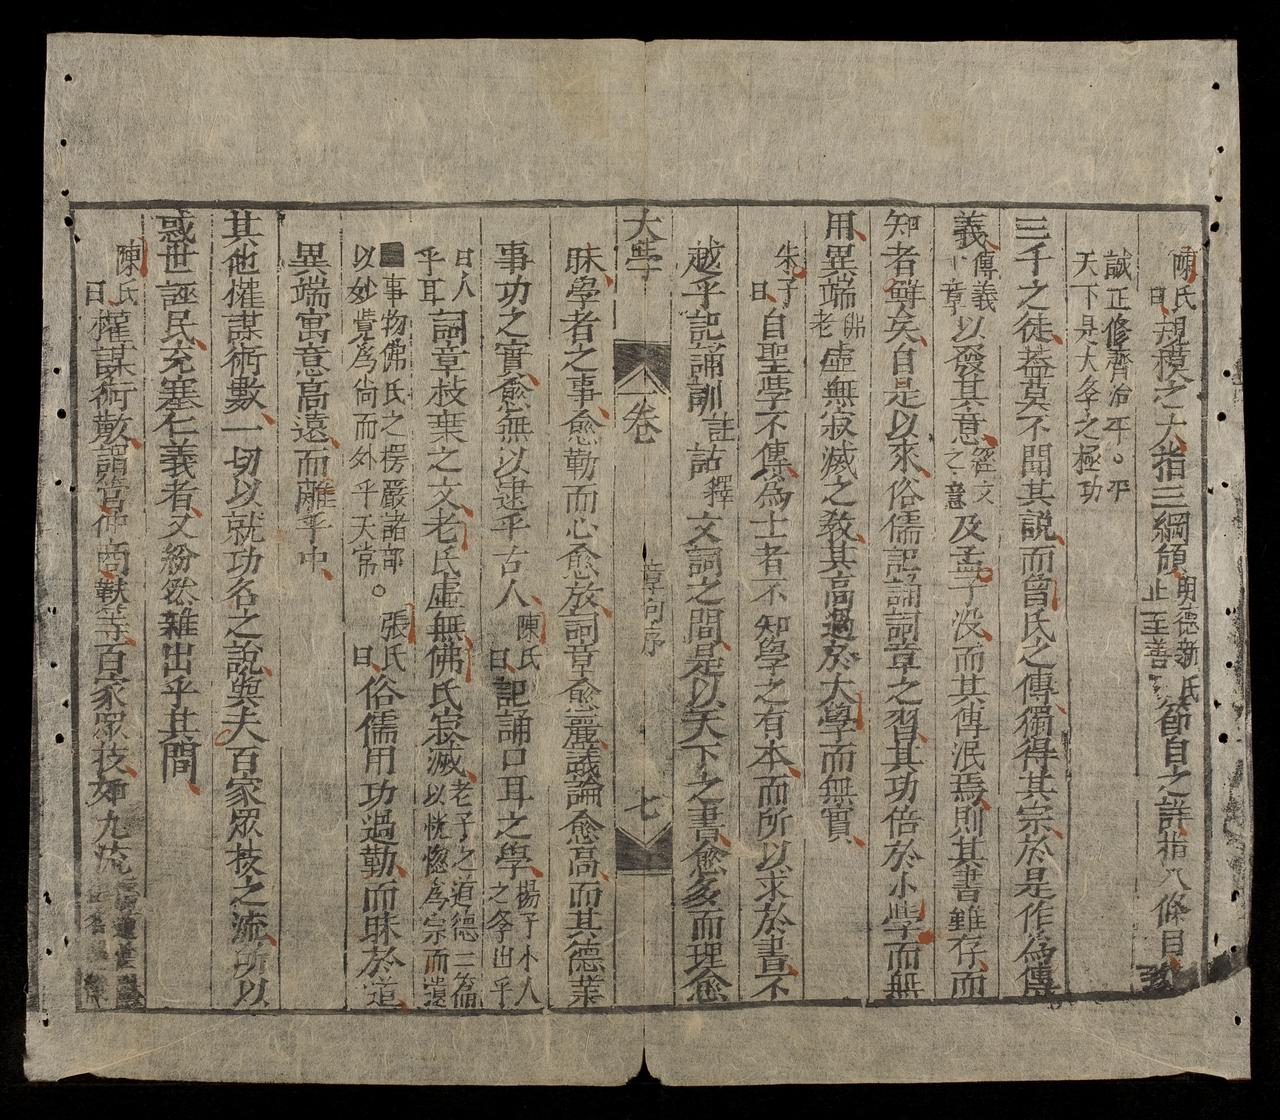 陳氏曰規模之大指三綱領明德新氏止至善節目之詳指八條目
誠正修齊治平。平天下是大学之極功
三千之徒蓋莫不聞其説而曾氏之傳獨得其宗於是作為傳
義傳義章以發其意經文之意及孟子没而其傳泯焉則其書雖存而
知者鮮矣自是以來俗儒記誦詞章之習其功倍於小學而無
用異端佛老虛無寂滅之教其高過於大學而無實
朱子曰自聖學不傳為士者不知學之有本而所以求於書不
越乎記誦訓註詁釋文詞之間是以天下之書愈多而理愈
大學 卷 章句序 七
昧學者之事愈勤而心愈放詞章愈麗議論愈高而其德業
事功之實愈無以逮乎古人陳氏曰記誦口耳之學楊子小人之学出乎
口入乎耳詞章枝葉之文老氏虛無佛氏寂滅老子之道德二篇以恍惚為宗而遺
事物佛氏之楞嚴諸部以妙覺為尚而外乎天常。張氏曰俗儒用功過勤而昧於道
異端寓意高遠而離乎中
其他權謀術數一切以就功名之說與夫百家眾技之流所以
惑世誣民充塞仁義者又紛然雜出乎其間
陳氏曰權謀術數謂管仲商鞅等百家眾技如九流